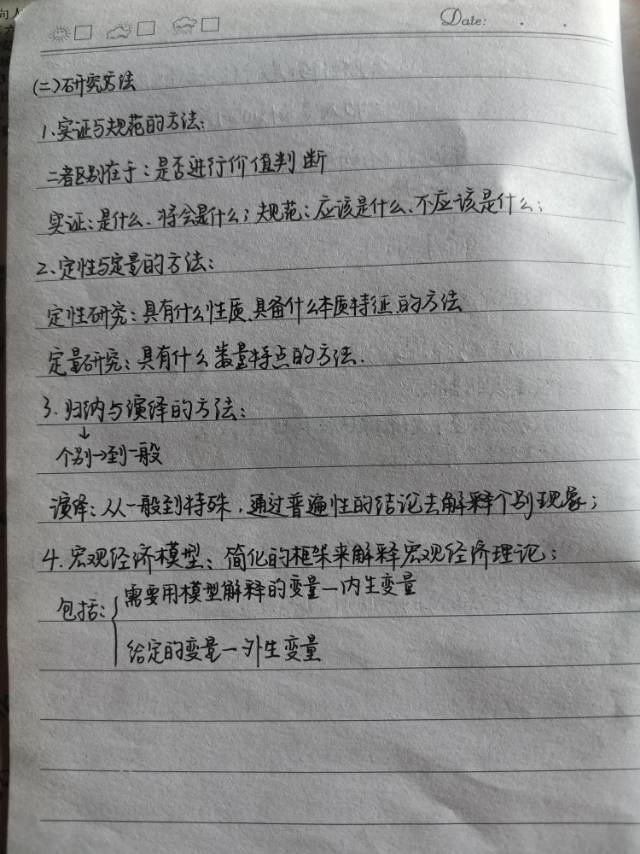 Date: . .
(二)研究方法
1.实证与规范的方法:
二者区别在于:是否进行价值判断
实证:是什么、将会是什么;规范:应该是什么、不应该是什么;
2.定性与定量的方法:
定性研究:具有什么性质、具备什么本质特征的方法
定量研究:具有什么数量特点的方法.
3.归纳与演绎的方法:
↓
个别→到一般
演绎:从一般到特殊,通过普遍性的结论去解释个别现象;
4.宏观经济模型:简化的框架来解释宏观经济理论;
包括:{需要用模型解释的变量—内生变量
给定的变量—外生变量